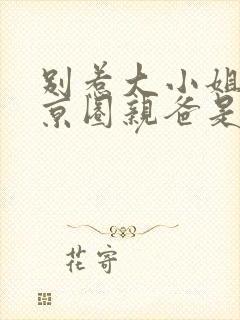 别惹大小姐
京圈亲爸是
花寄